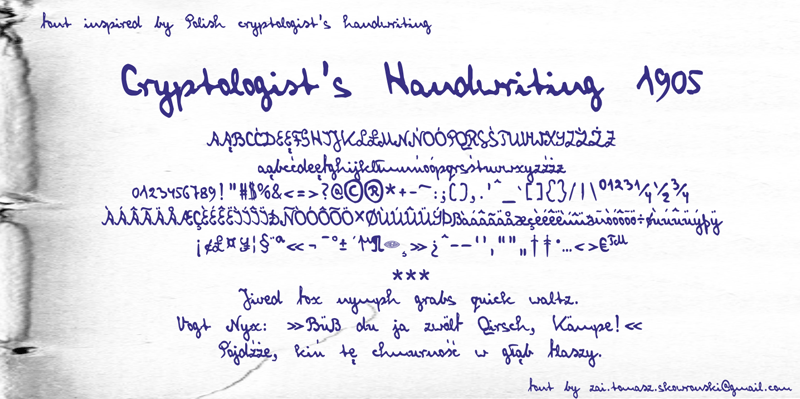 font inspired by Polish cryptologist's handwriting
Cryptologist's Handwriting 1905
AĄBCĆDEĘFGHIJKLŁMNŃOÓPQRSŚTUVWXYZŹŻ
aąbcćdeęfghijklłmnńoópqrsśtuvwxyzźż
0123456789!"#$%&<=>?@©®*+-~:;(),.'^_`[]{}/|\⁰¹²³¼½¾
ÀÁÂÃÄÅÆÇÈÉÊËÌÍÎÏÐÑÒÓÔÕÖ×ØÙÚÛÜÝÞßàáâãäåæçèéêëìíîïðñòóôõö÷øùúûüýþÿ
***
Jived fox nymph grabs quick waltz.
Vogt Nyx: »Büß du ja zwölf Qirsch, Kämpe!«
Pójdźże, kiń tę chmurność w głąb flaszy.
font by zai.tomasz.skowronski@gmail.com